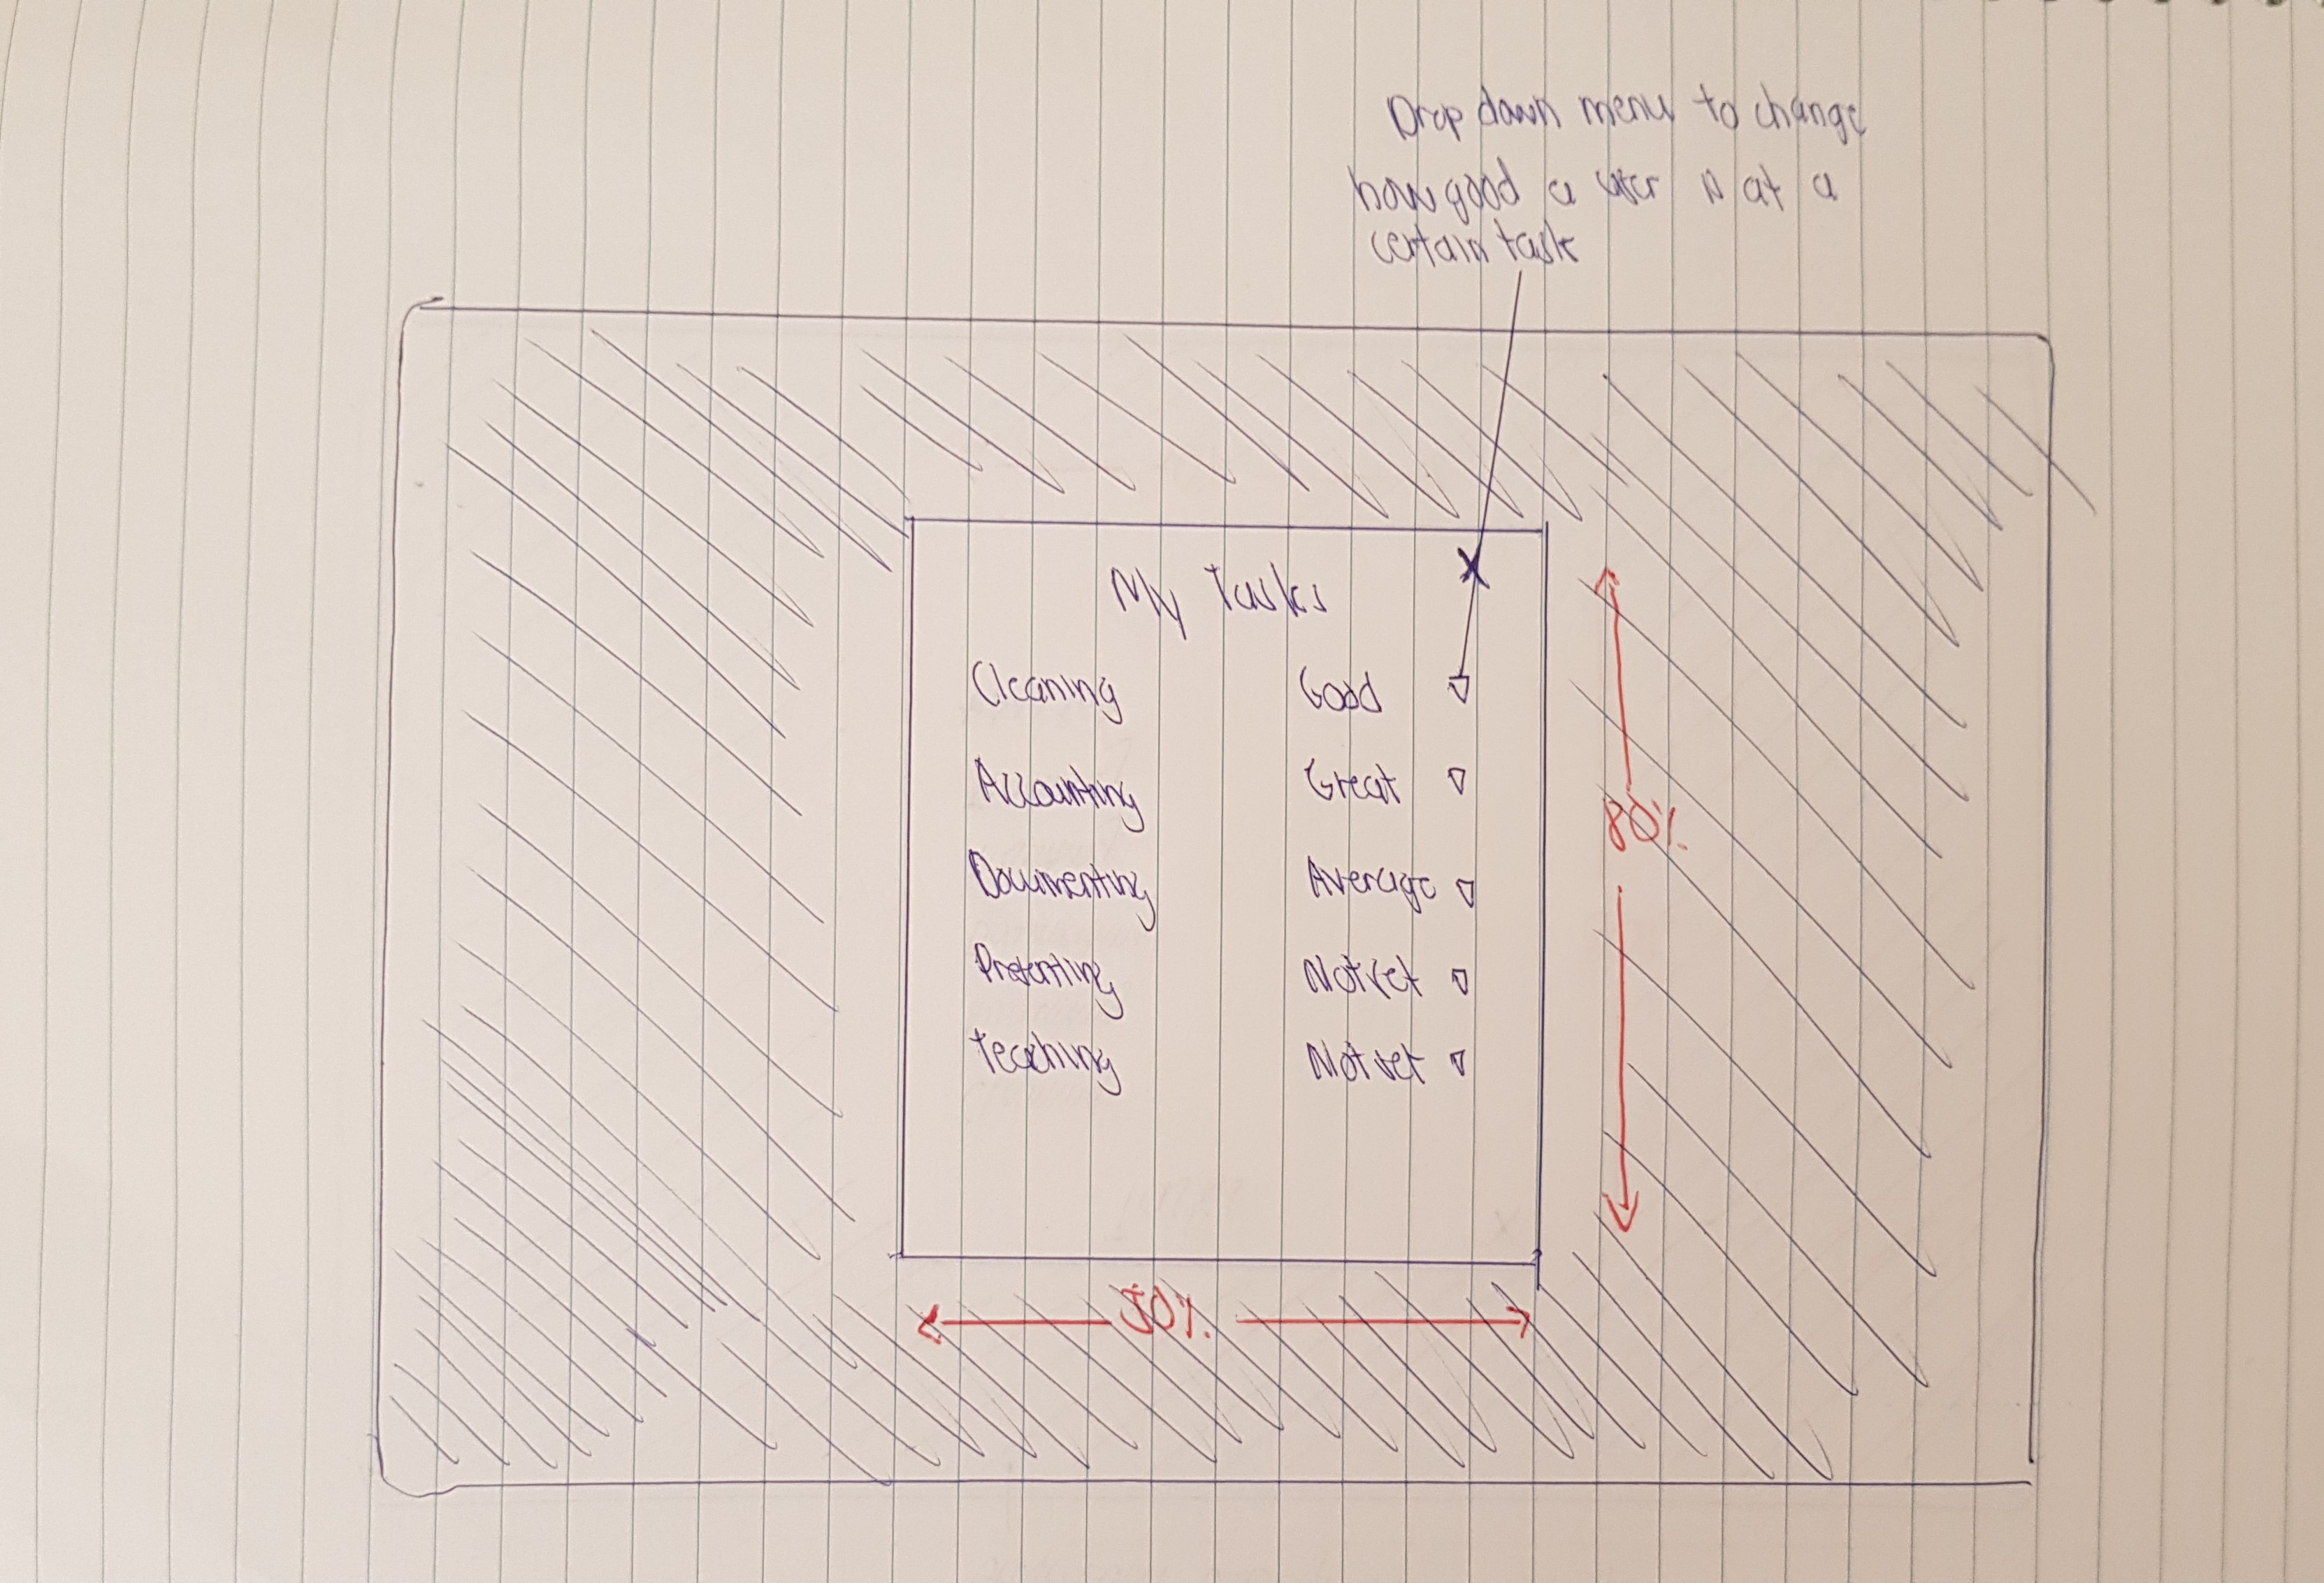 Drop down menu to change
how good a user is at a
certain task
My Tasks X
Cleaning Good
Accounting Great
Documenting Average
Presenting Not Yet
Teaching Not Yet
80%
50%